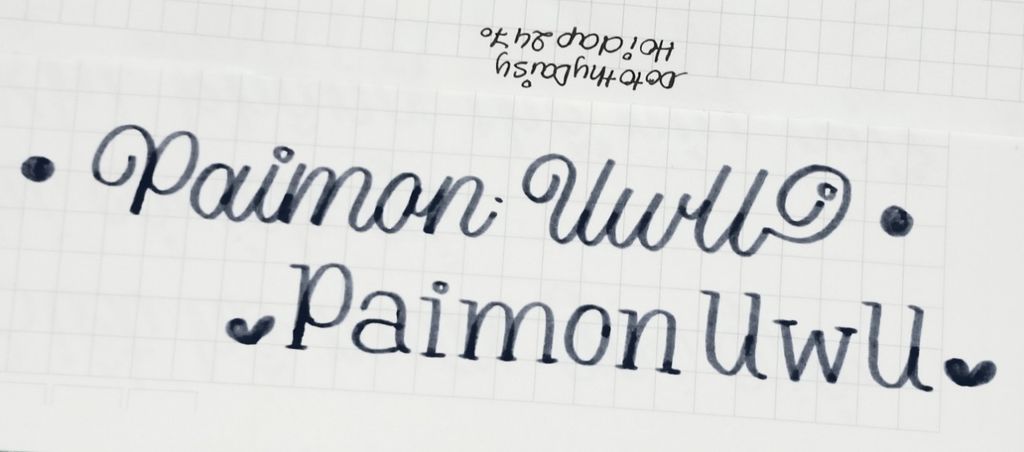 DotothyDaisy
Hoidap247.
Paimon UwU
Paimon UwU